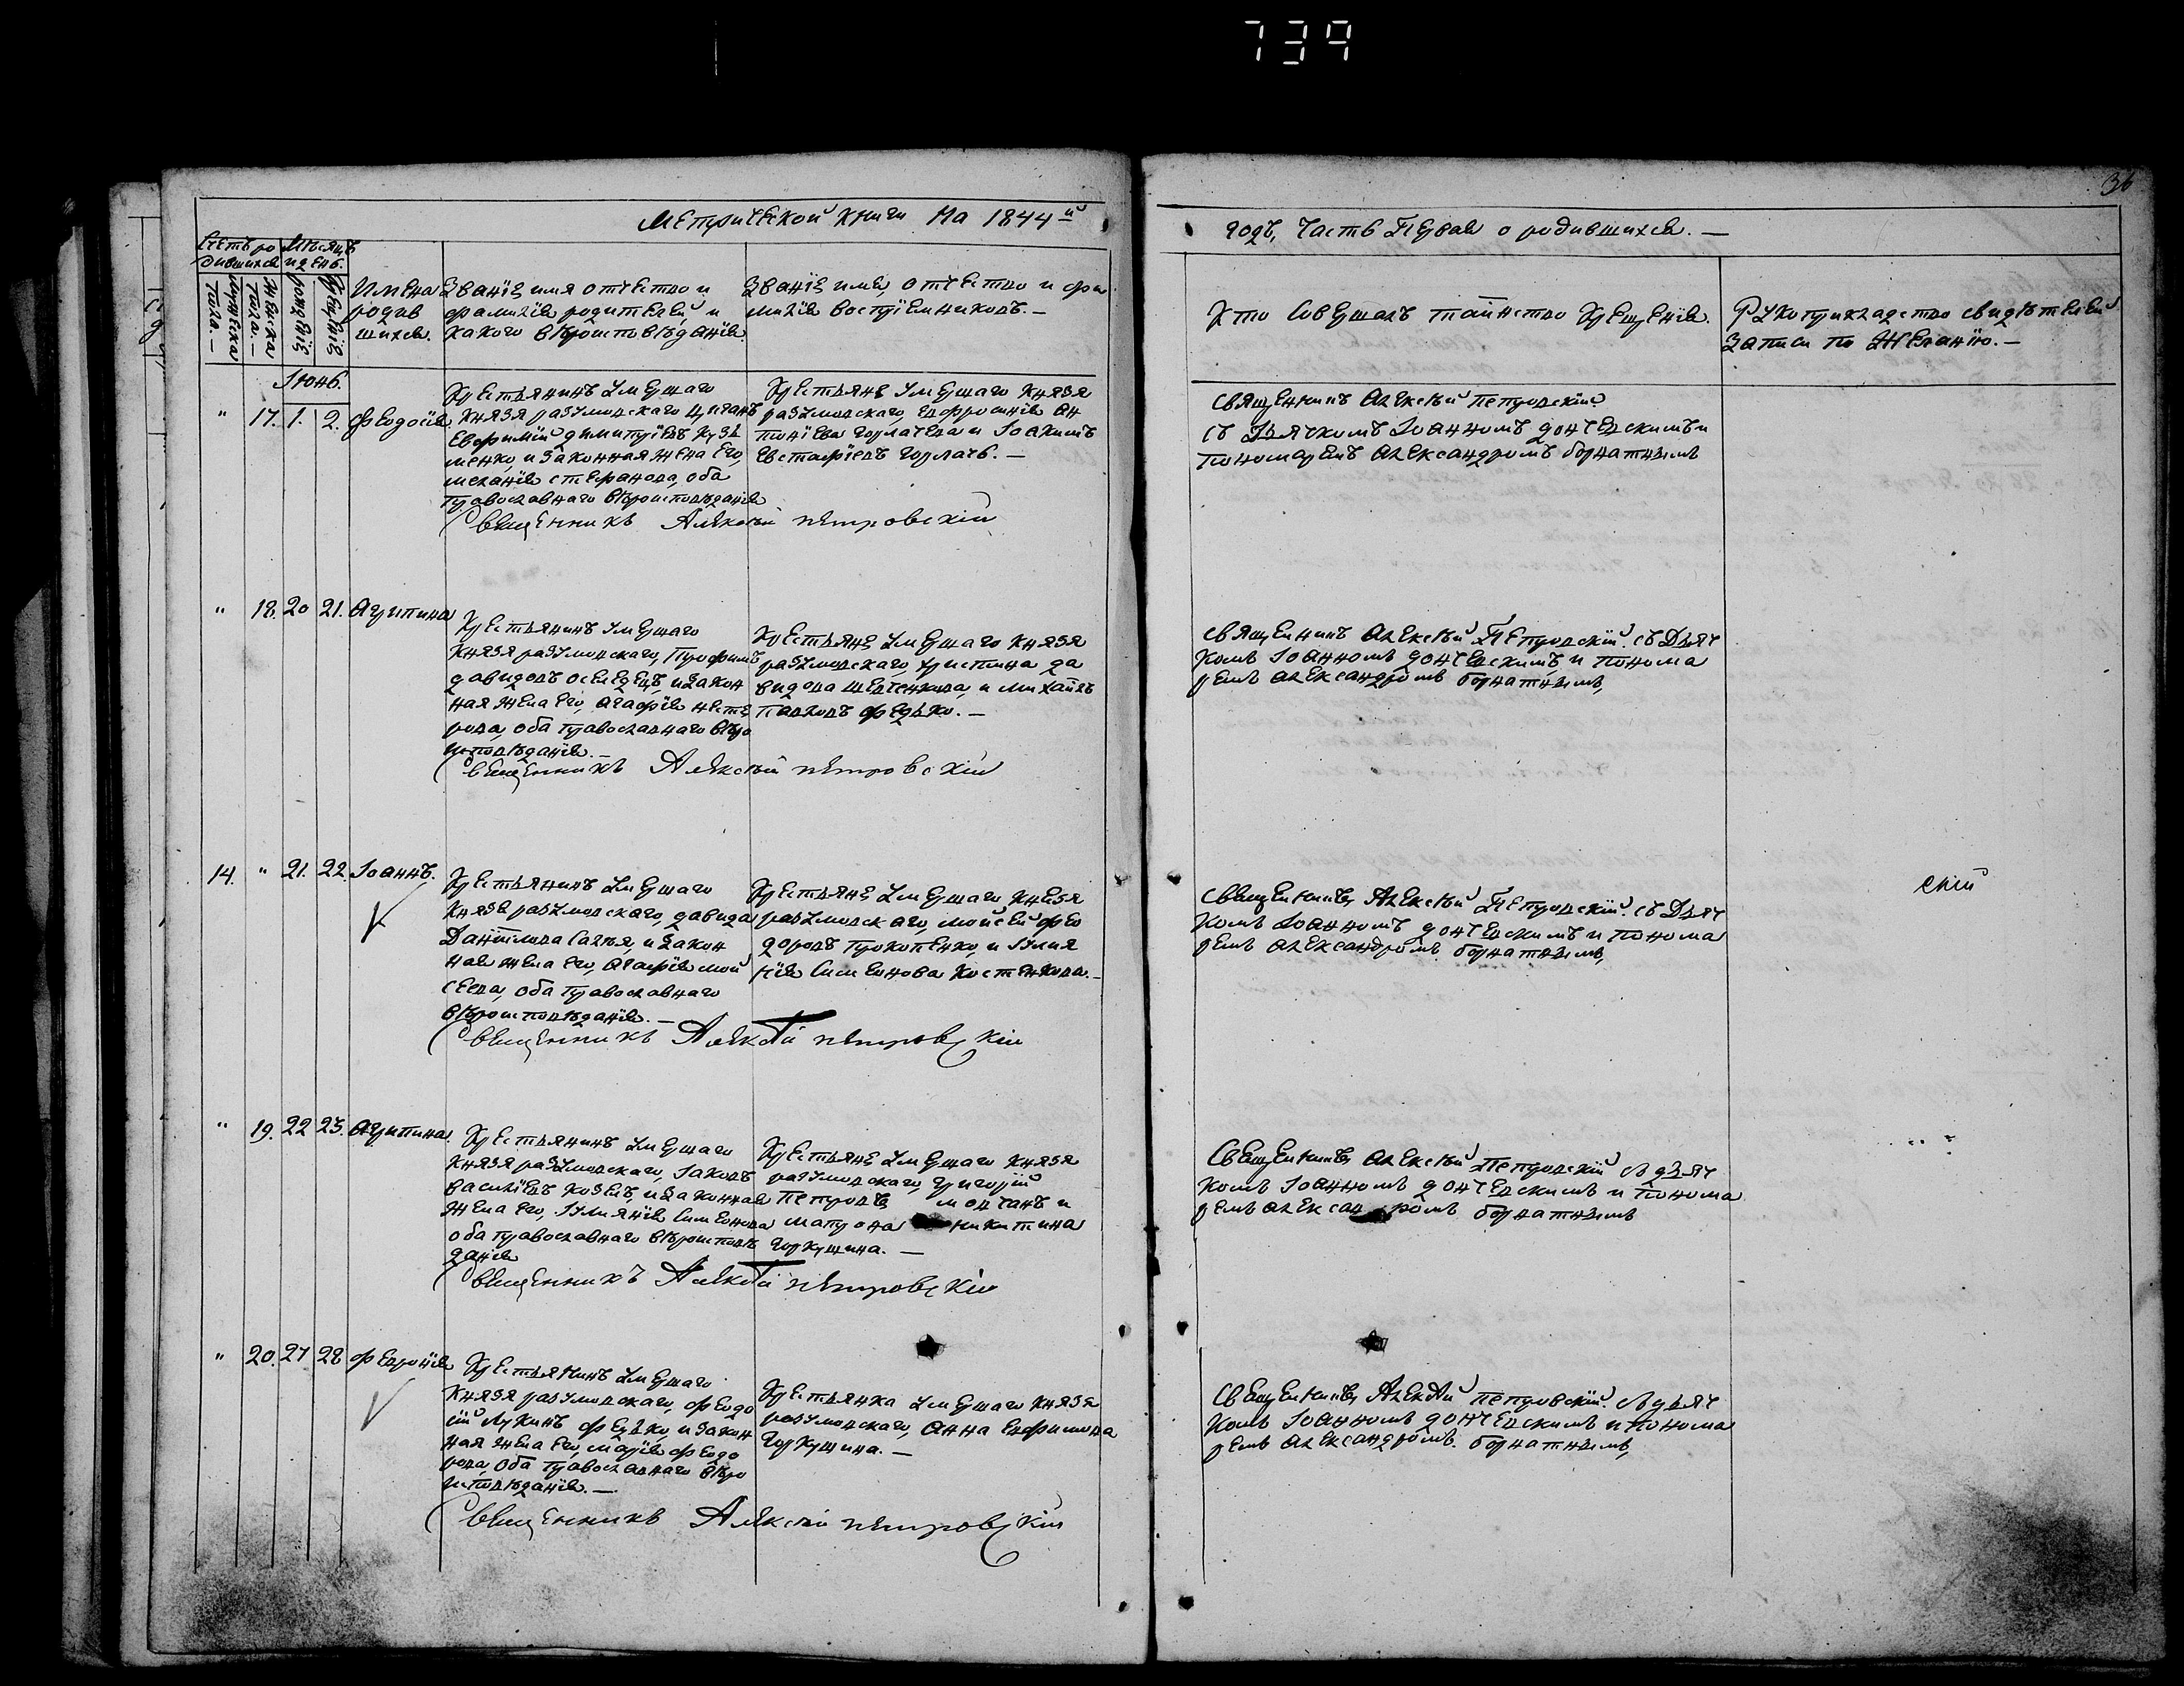 739
36
Метрической книги На 1844й
годъ, Часть Первая о родившихся. —
Счетъ ро
дившихся
Мѣсяцъ
и день.
Мужеска
пола. —
Женска
пола. —
рожденіе
Крещеніе
Имена
родив
шихся.
Званіе имя отчество и
фамилія родителей, и
какого вѣроисповѣданія.
Званіе имя, отчество и фа
милія воспріемниковъ. —
Кто совершалъ таинство Крещенія.
Рукоприкладство свидѣтелей
записи по Желанію. —
Іюнь.
" 17. 1. 2. Феодосія
Крестьянинъ умершаго
Князя разумовскаго Цыганъ
Евфимій димитріевъ Кузь
менко, и законная жена его,
меланія стефанова, оба
православнаго вѣроисповѣданія
Священникъ Алексѣй петровскій
Крестьяне умершаго Князя
разумовскаго, Евфросинія Ан
тоніева горлачева и Іоакимъ
Евстафіевъ горлачъ. —
священникъ Алексѣй петровскій
съ Дьячкомъ Іоанномъ дончевскимъ и
пономаремъ Александромъ богнатнымъ
" 18. 20 21. Агрипина
Крестьянинъ умершаго
Князя разумовскаго, Трофимъ
давидовъ оселедецъ, и закон
ная жена его, Агафія несте
рова, оба православнаго вѣро
исповѣданія. —
Священникъ Алексѣй петровскій
Крестьяне умершаго Князя
разумовскаго, христина да
видова шевченкова, и михаилъ
павловъ федько. —
священникъ Алексѣй Петровскій съ Дьяч
комъ Іоанномъ дончевскимъ, и понома
ремъ александромъ богнатнымъ,
14. " 21. 22. Іоаннъ.
Крестьянинъ умершаго
Князя разумовскаго, давидъ
Даніилова Салья, и закон
ная жена его, Агафія мой
сеева, оба православнаго
вѣроисповѣданія. —
Священникъ Алексѣй петровскій
Крестьяне умершаго Князя
разумовскаго, мойсей фео
доровъ прокопенко, и Іулия
нія Симеонова Костенкова. —
Священникъ Алексѣй Петровскій съ Дьяч
комъ Іоанномъ дончевскимъ и понома
ремъ александромъ богнатнымъ,
скій
" 19. 22 23. Агрипина.
Крестьянинъ умершаго
Князя разумовскаго, Іаковъ
василіевъ козелъ, и законная
жена его, Іулианія Симеонова
оба православнаго вѣроисповѣ
данія
Священникъ Алексѣй петровскій
Крестьяне умершаго Князя
разумовскаго, григорій
Петровъ мовчанъ и
матрона никитина
горкушина. —
Священникъ Алексѣй Петровскій съ дьяч
комъ Іоанномъ дончевскимъ и понома
ремъ александромъ богнатнымъ
" 20. 27 28 февронія
Крестьянинъ умершаго
Князя разумовскаго, феодо
сій Лукинъ федько, и закон
ная жена его, марія феодо
рова, оба православнаго вѣро
исповѣданія. —
Священникъ Алексѣй петровскій
Крестьянка умершаго Князя
разумовскаго, Анна Евфимова
горкушина. —
Священникъ Алексѣй петровскій съ дьяч
комъ Іоанномъ дончевскимъ и понома
ремъ Александромъ богнатнымъ,